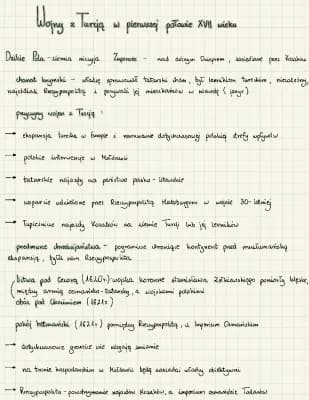 Wojny z Turcją w pierwszej połowie XVII wieku
Dzikie Pola - ziemia niczyja Zaporoże - nad dolnym Dnieprem, zasiedlane przez Kozaków
chanat krymski - władzę sprawował tatarski chan, był lennikiem tureckim, niezależny,
najeżdżali Rzeczpospolitą i porywali jej mieszkańców w niewolę (jasyr)
przyczyny wojen z Turcją :
→ ekspansja turecka w Europie i naruszanie dotychczasowej polskiej strefy wpływów
→ polskie interwencje w Mołdawii
→ tatarskie najazdy na państwo polsko-litewskie
→ wsparcie udzielone przez Rzeczpospolitą Habsburgom w wojnie 30-letniej
→ łupieżcze najazdy Kozaków na ziemie Turcji lub jej lenników
przedmurze chrześcijaństwa - pogranicze chroniące kontynent przed muzułmańską
ekspansją, była nim Rzeczpospolita
bitwa pod Cecorą (1620r.) - wojska koronne Stanisława Żółkiewskiego poniosły klęskę,
między armią osmańsko-tatarską, a wojskami polskimi
obóz pod Chocimiem (1621r.)
pokój (1621r.) pomiędzy Rzeczpospolitą, a Imperium Osmańskim
→ dotychczasowe granice nie ulegają zmianie
→ na tronie hospodarskim w Mołdawii będą zasiadać władcy obiektywni
→ Rzeczpospolita - powstrzymanie najazdów Kozaków, a imperium osmańskie Tatarów